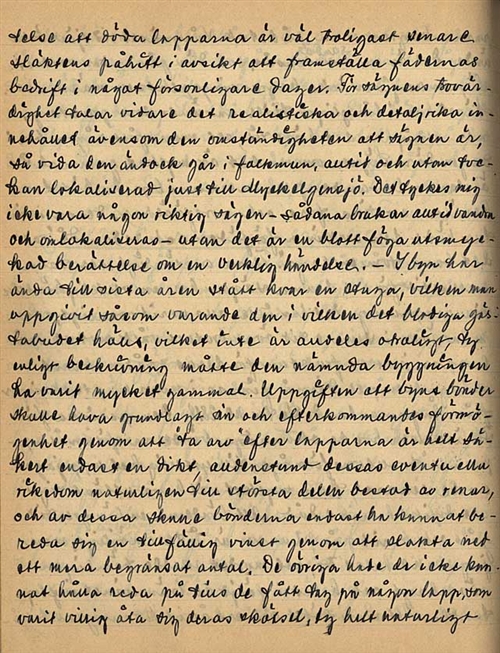 telse att döda lapparna är väl troligast senare
släktens påhitt i avsikt att framställa fädernas
bedrift i något försonligare dager. För sägnens trovär-
dighet talar vidare det realistiska och detaljrika in-
nehållet ävensom den omständigheten att sägnen är,
så vida den ändock går i folkmun, alltid och utom tve-
kan lokaliserad just till Myckelgensjö. Det tyckes mig
icke vara någon riktig sägen – sådana brukar alltid vandra
och omlokaliseras – utan det är en blott föga utsmyc-
kad berättelse om en verklig händelse. – I byn har
ända till sista åren stått kvar en stuga, vilken man
uppgivit såsom varande den i vilken det blodiga gäs-
tabudet hölls, vilket inte är alldeles otroligt ty
enligt beskrivning måste den nämnda byggningen
ha varit mycket gammal. Uppgiften att byns bönder
skulle hava grundlagt sin och efterkommandes förmö-
genhet genom att "ta arv" efter lapparna är helt sä-
kert endast en dikt, alldenstund dessas eventuella
rikedom naturligen till största delen bestod av renar,
och av dessa skulle bönderna endast ha kunnat be-
reda sig en tillfällig vinst genom att slakta ned
ett mera begränsat antal. De övriga hade de icke kun-
nat hålla reda på tills de fått tag på någon lapp, som
varit villig åta sig deras skötsel, ty helt naturligt